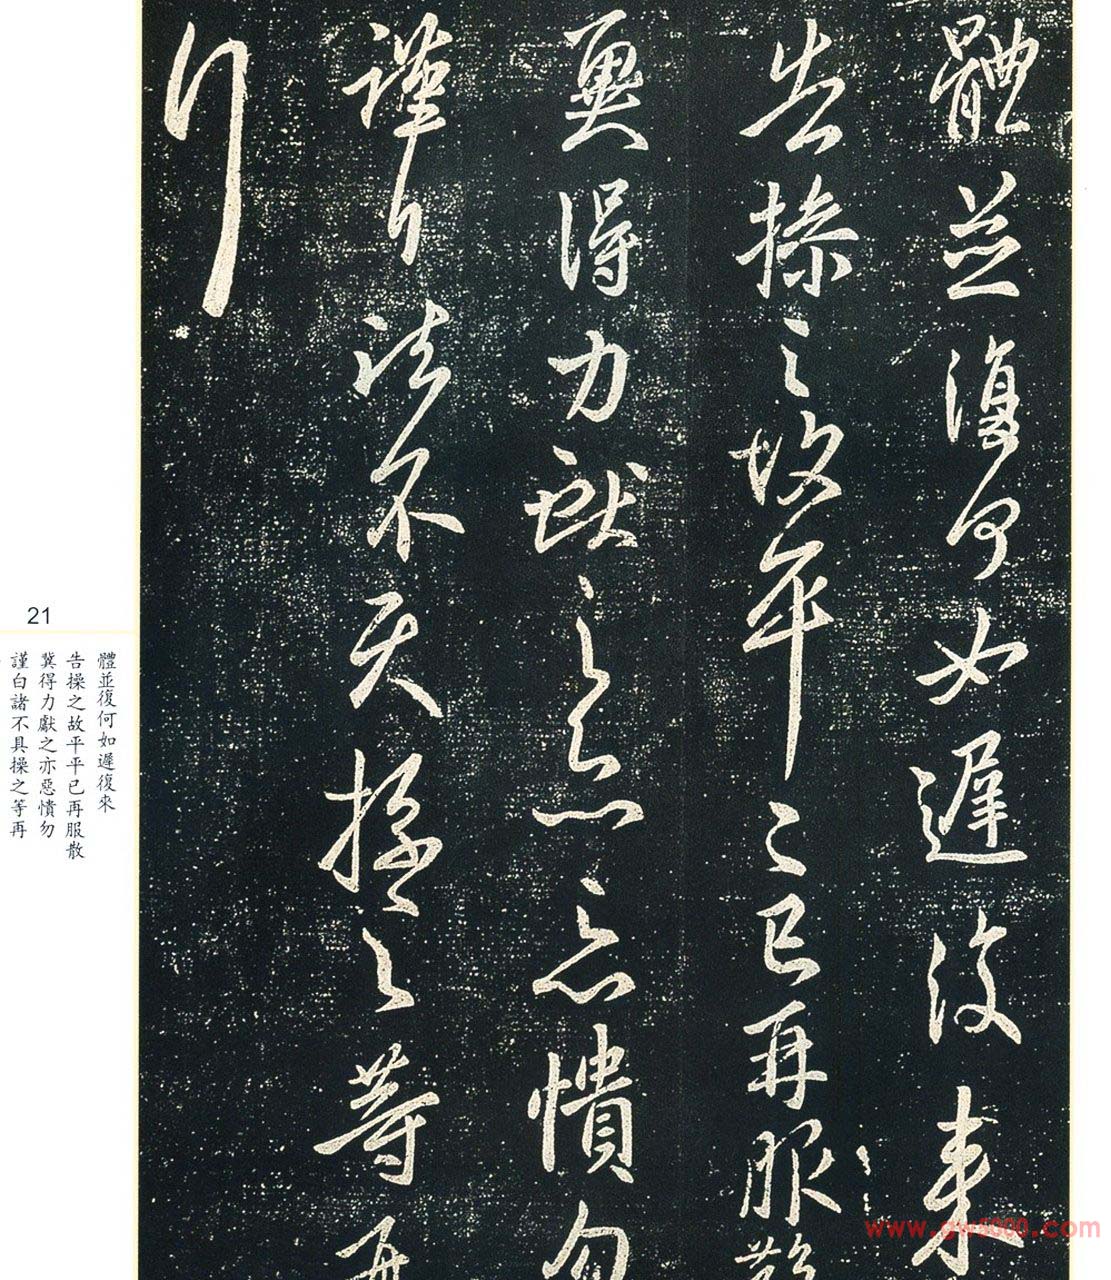 體並復何如遲復來
告操之故平平已再服散
冀得力獻之亦惡憒勿
謹白諸不具操之等再
21
體並復何如遲復來
告操之故平平已再服散
冀得力獻之亦惡憒勿
謹白諸不具操之等再
www.gw5000.com